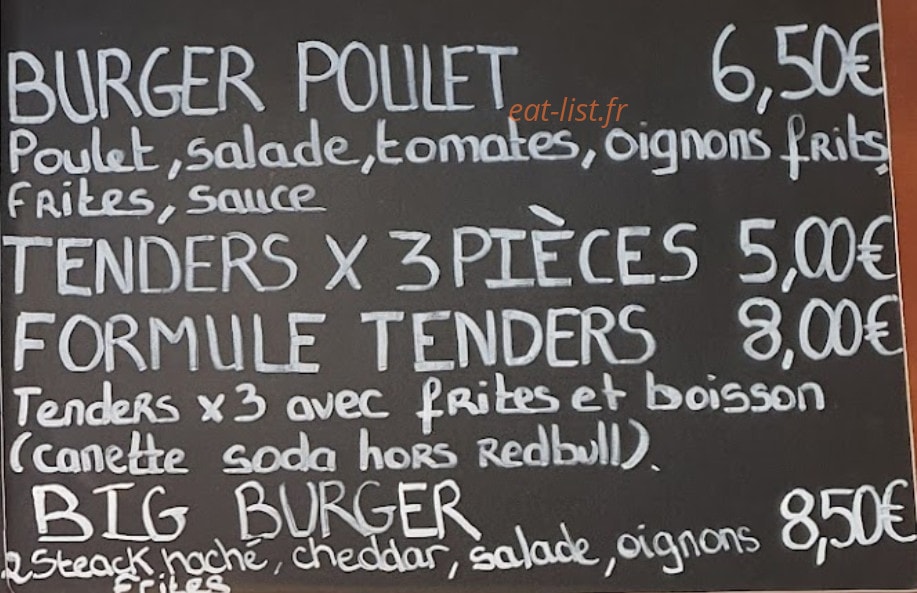 BURGER POULET 6,50€
eat-list.fr
Poulet, salade, tomates, oignons frits,
frites, sauce
TENDERS X 3 PIÈCES 5,00€
FORMULE TENDERS 8,00€
Tenders x 3 avec frites et boisson
(canette soda hors Redbull).
BIG BURGER 8,50€
2 Steack haché, cheddar, salade, oignons
frites